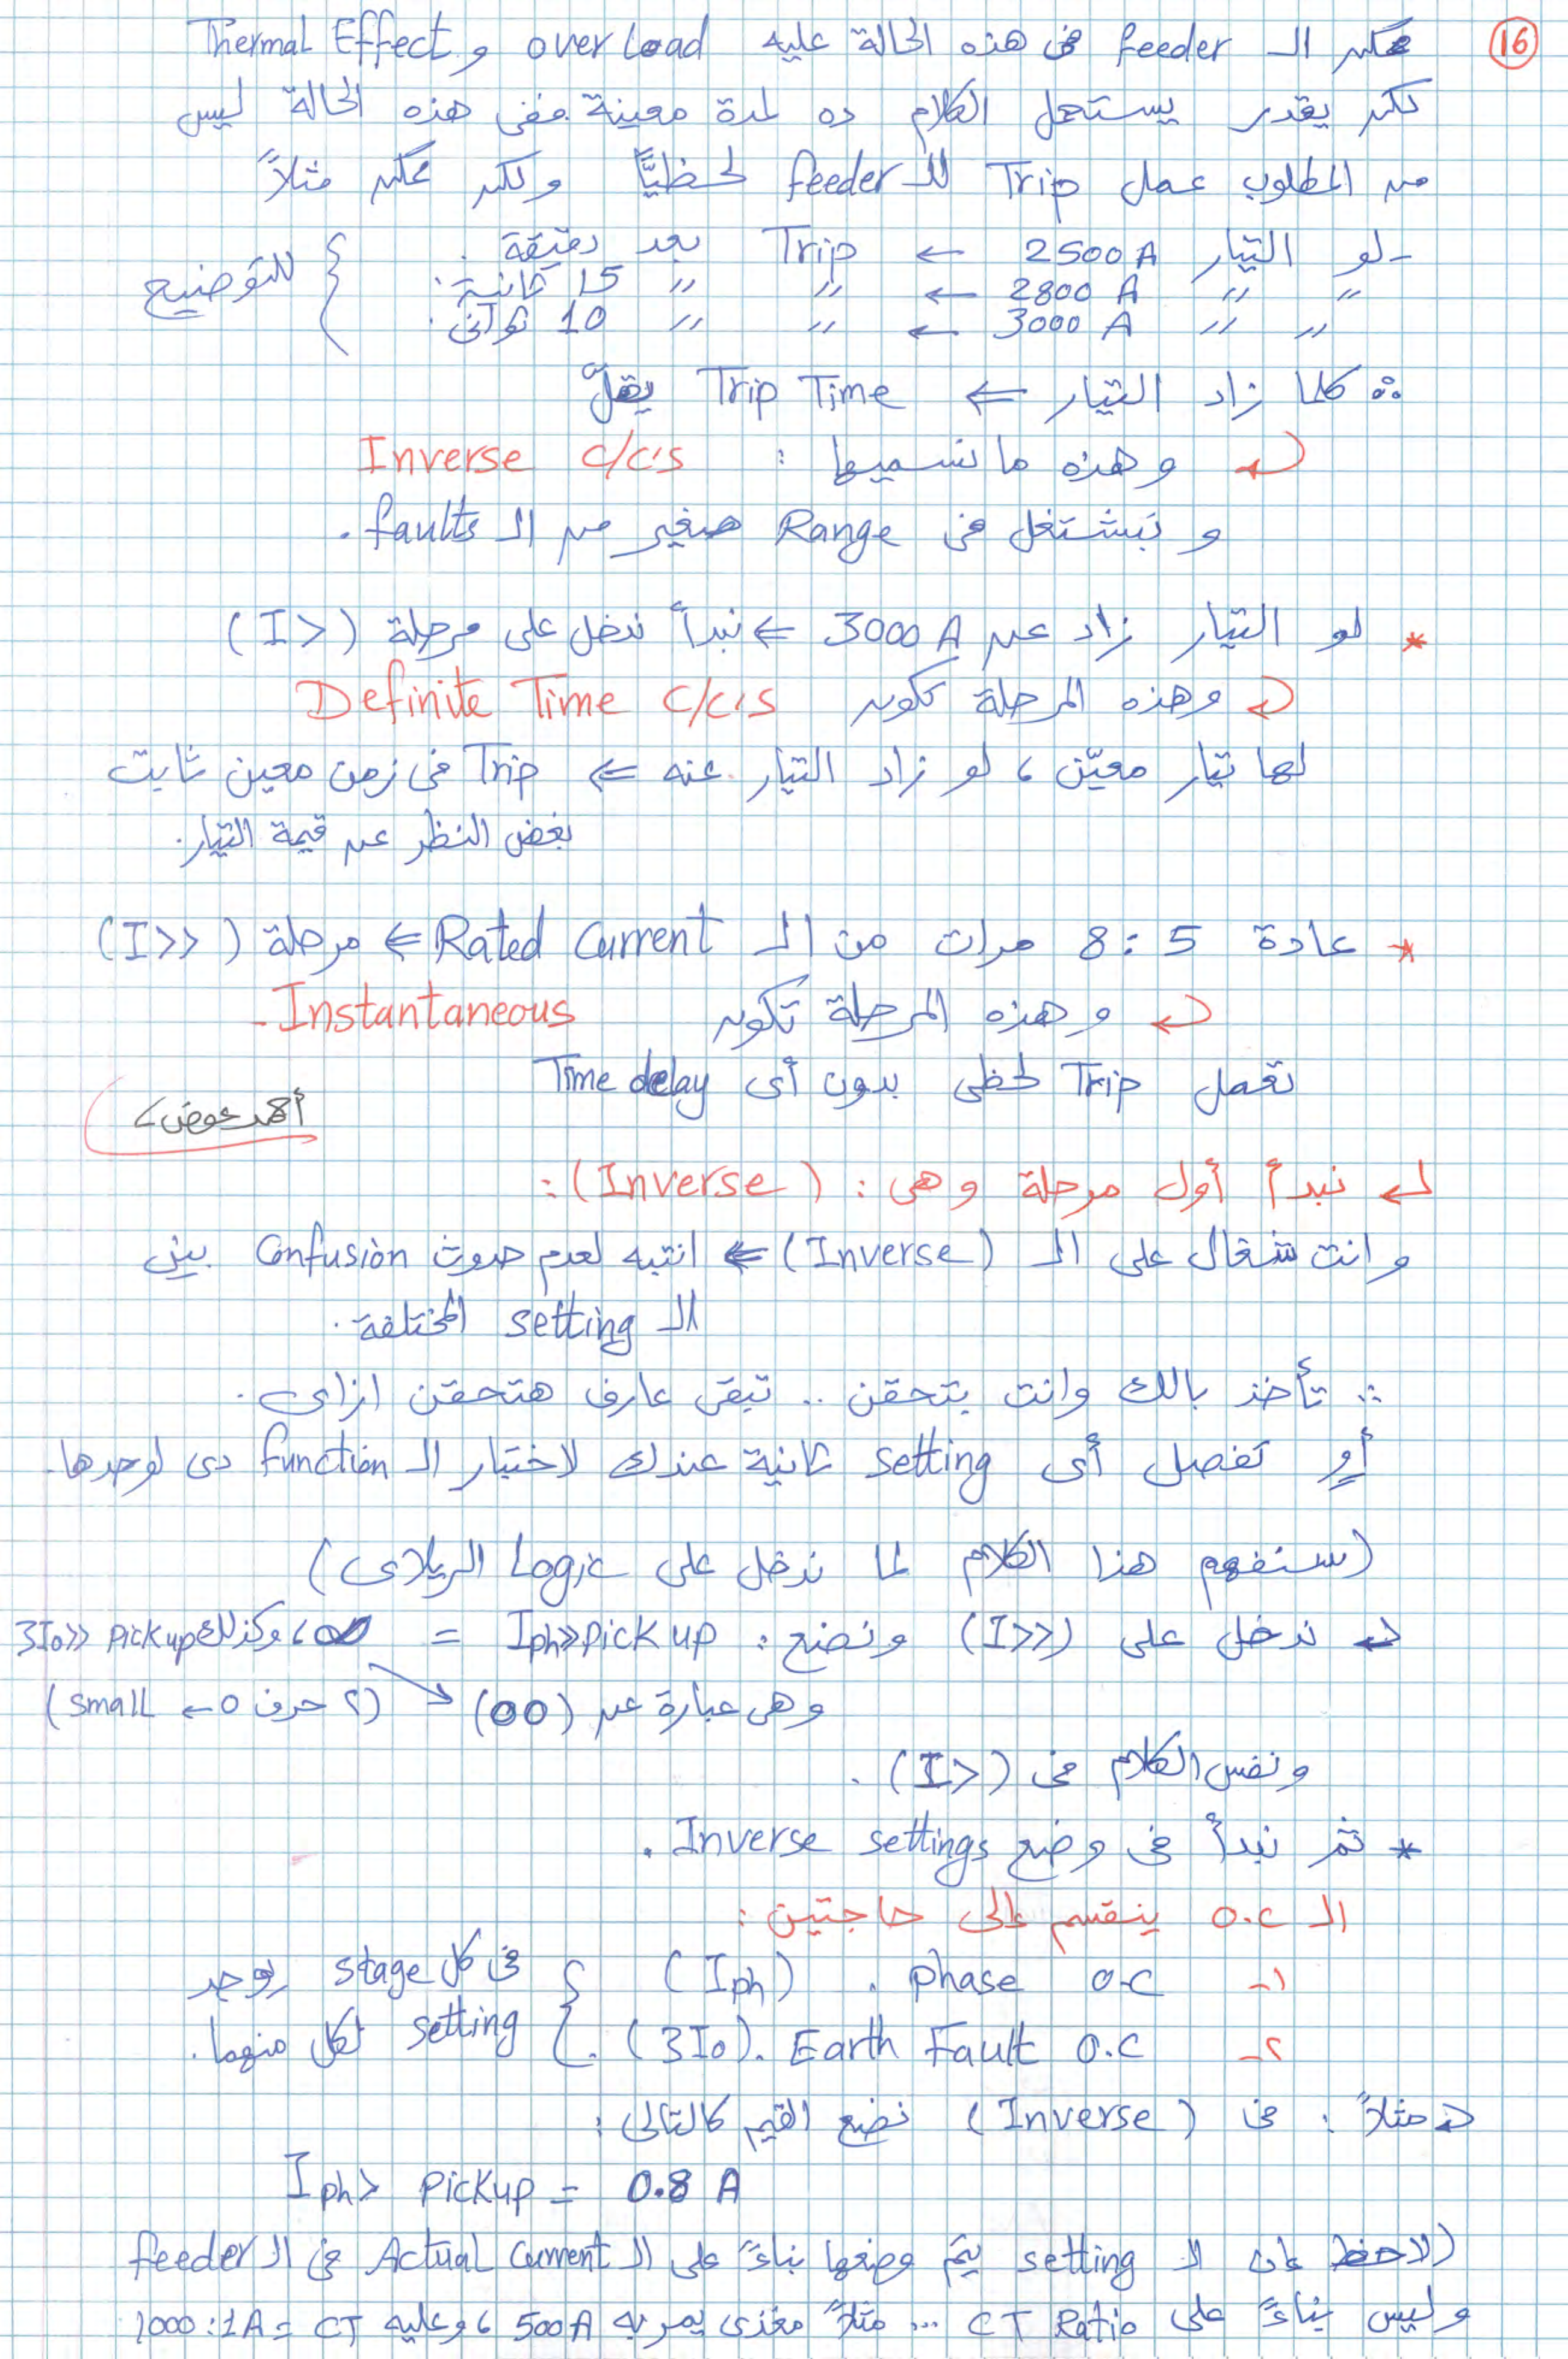 16
ممكن الـ feeder فى هذه الحالة عليه over Load و Thermal Effect
لكن يقدر يستحمل الكلام ده لمدة معينة ففى هذه الحالة ليس
من المطلوب عمل Trip للـ feeder لحظيًّا ولكن ممكن مثلاً
- لو التيار 2500 A ← Trip بعد دقيقة .
〃 〃 2800 A ← 〃 〃 15 ثانية .
〃 〃 3000 A ← 〃 〃 10 ثوانى .
للتوضيح
∴ كلما زاد التيار ⇐ Trip Time يقلّ
↵ وهذه ما نسميها : Inverse c/c's
و تبشتغل فى Range صغير من الـ faults .
* لو التيار زاد عن 3000 A ⇐ نبدأ ندخل على مرحلة (I>)
↵ وهذه المرحلة تكون Definite Time c/c's
لها تيار معيّن ، لو زاد التيار عنه ⇐ Trip فى زمن معين ثابت
بغض النظر عن قيمة التيار.
* عادة 5 : 8 مرات من الـ Rated Current ⇐ مرحلة (I>>)
↵ وهذه المرحلة تكون Instantaneous -
تعمل Trip لحظى بدون أى Time delay
أحمد عوض
↵ نبدأ أول مرحلة وهى : (Inverse) :
وانت شغال على الـ (Inverse) ⇐ انتبه لعدم حدوث Confusion بين
الـ setting المختلفة .
∴ تأخذ بالك وانت بتحقن .. تبقى عارف هتحقن ازاى .
أو تفصل أى setting تانية عندك لاختبار الـ function دى لوحدها .
(سنفهم هذا الكلام لما ندخل على Logic الريلاى)
↵ ندخل على (I>>) ونضع : Iph>> Pick up = ∞ ، وكذلك 3Io>> Pickup
وهى عبارة عن (oo) (٢ حرف o ← small)
ونفس الكلام فى (I>) .
* ثم نبدأ فى وضع Inverse settings .
الـ o.c ينقسم إلى حاجتين :
١- phase o.c . (Iph)
٢- Earth Fault o.c . (3Io) .
فى كل stage يوجد
setting لكل منهما .
↵ مثلاً : فى (Inverse) نضع القيم كالتالى :
Iph> Pickup = 0.8 A
(لاحظ إن الـ setting يتم وضعها بناءً على الـ Actual Current فى الـ feeder
وليس بناءً على CT Ratio ... مثلاً مغذى يمر به 500A ، وعليه CT = 1000:1A